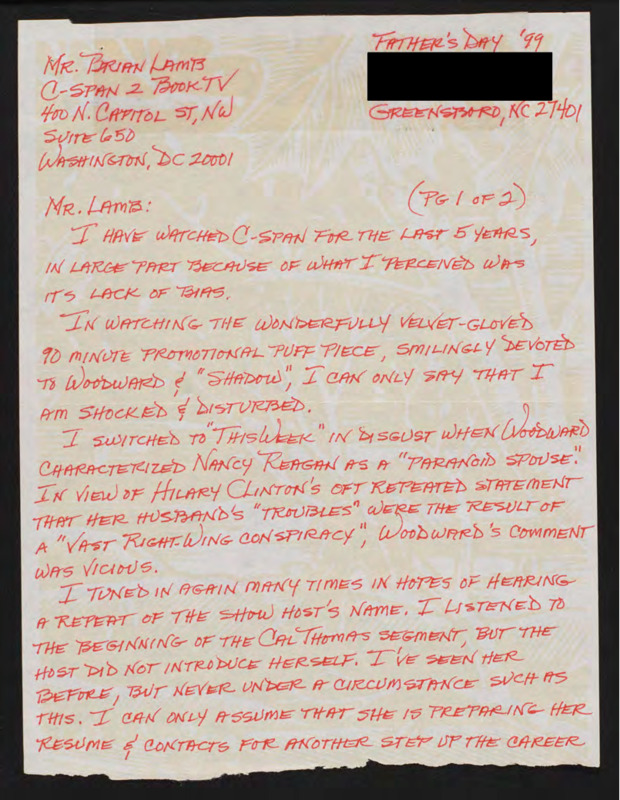 Father's Day '99
Greensboro, NC 27401
Mr. Brian Lamb
C-Span 2 Book TV
400 N. Capitol St, NW
Suite 650
Washington, DC 20001
(Pg 1 of 2)
Mr. Lamb:
I have watched C-Span for the last 5 years,
in large part because of what I perceived was
its lack of bias.
In watching the wonderfully velvet-gloved
90 minute promotional puff piece, smilingly devoted
to Woodward & "Shadow", I can only say that I
am shocked & disturbed.
I switched to "This Week" in disgust when Woodward
characterized Nancy Reagan as a "paranoid spouse."
In view of Hilary Clinton's oft repeated statement
that her husband's "troubles" were the result of
a "vast right-wing conspiracy", Woodward's comment
was vicious.
I tuned in again many times in hopes of hearing
a repeat of the show host's name. I listened to
the beginning of the Cal Thomas segment, but the
host did not introduce herself. I've seen her
before, but never under a circumstance such as
this. I can only assume that she is preparing her
resume & contacts for another step up the career